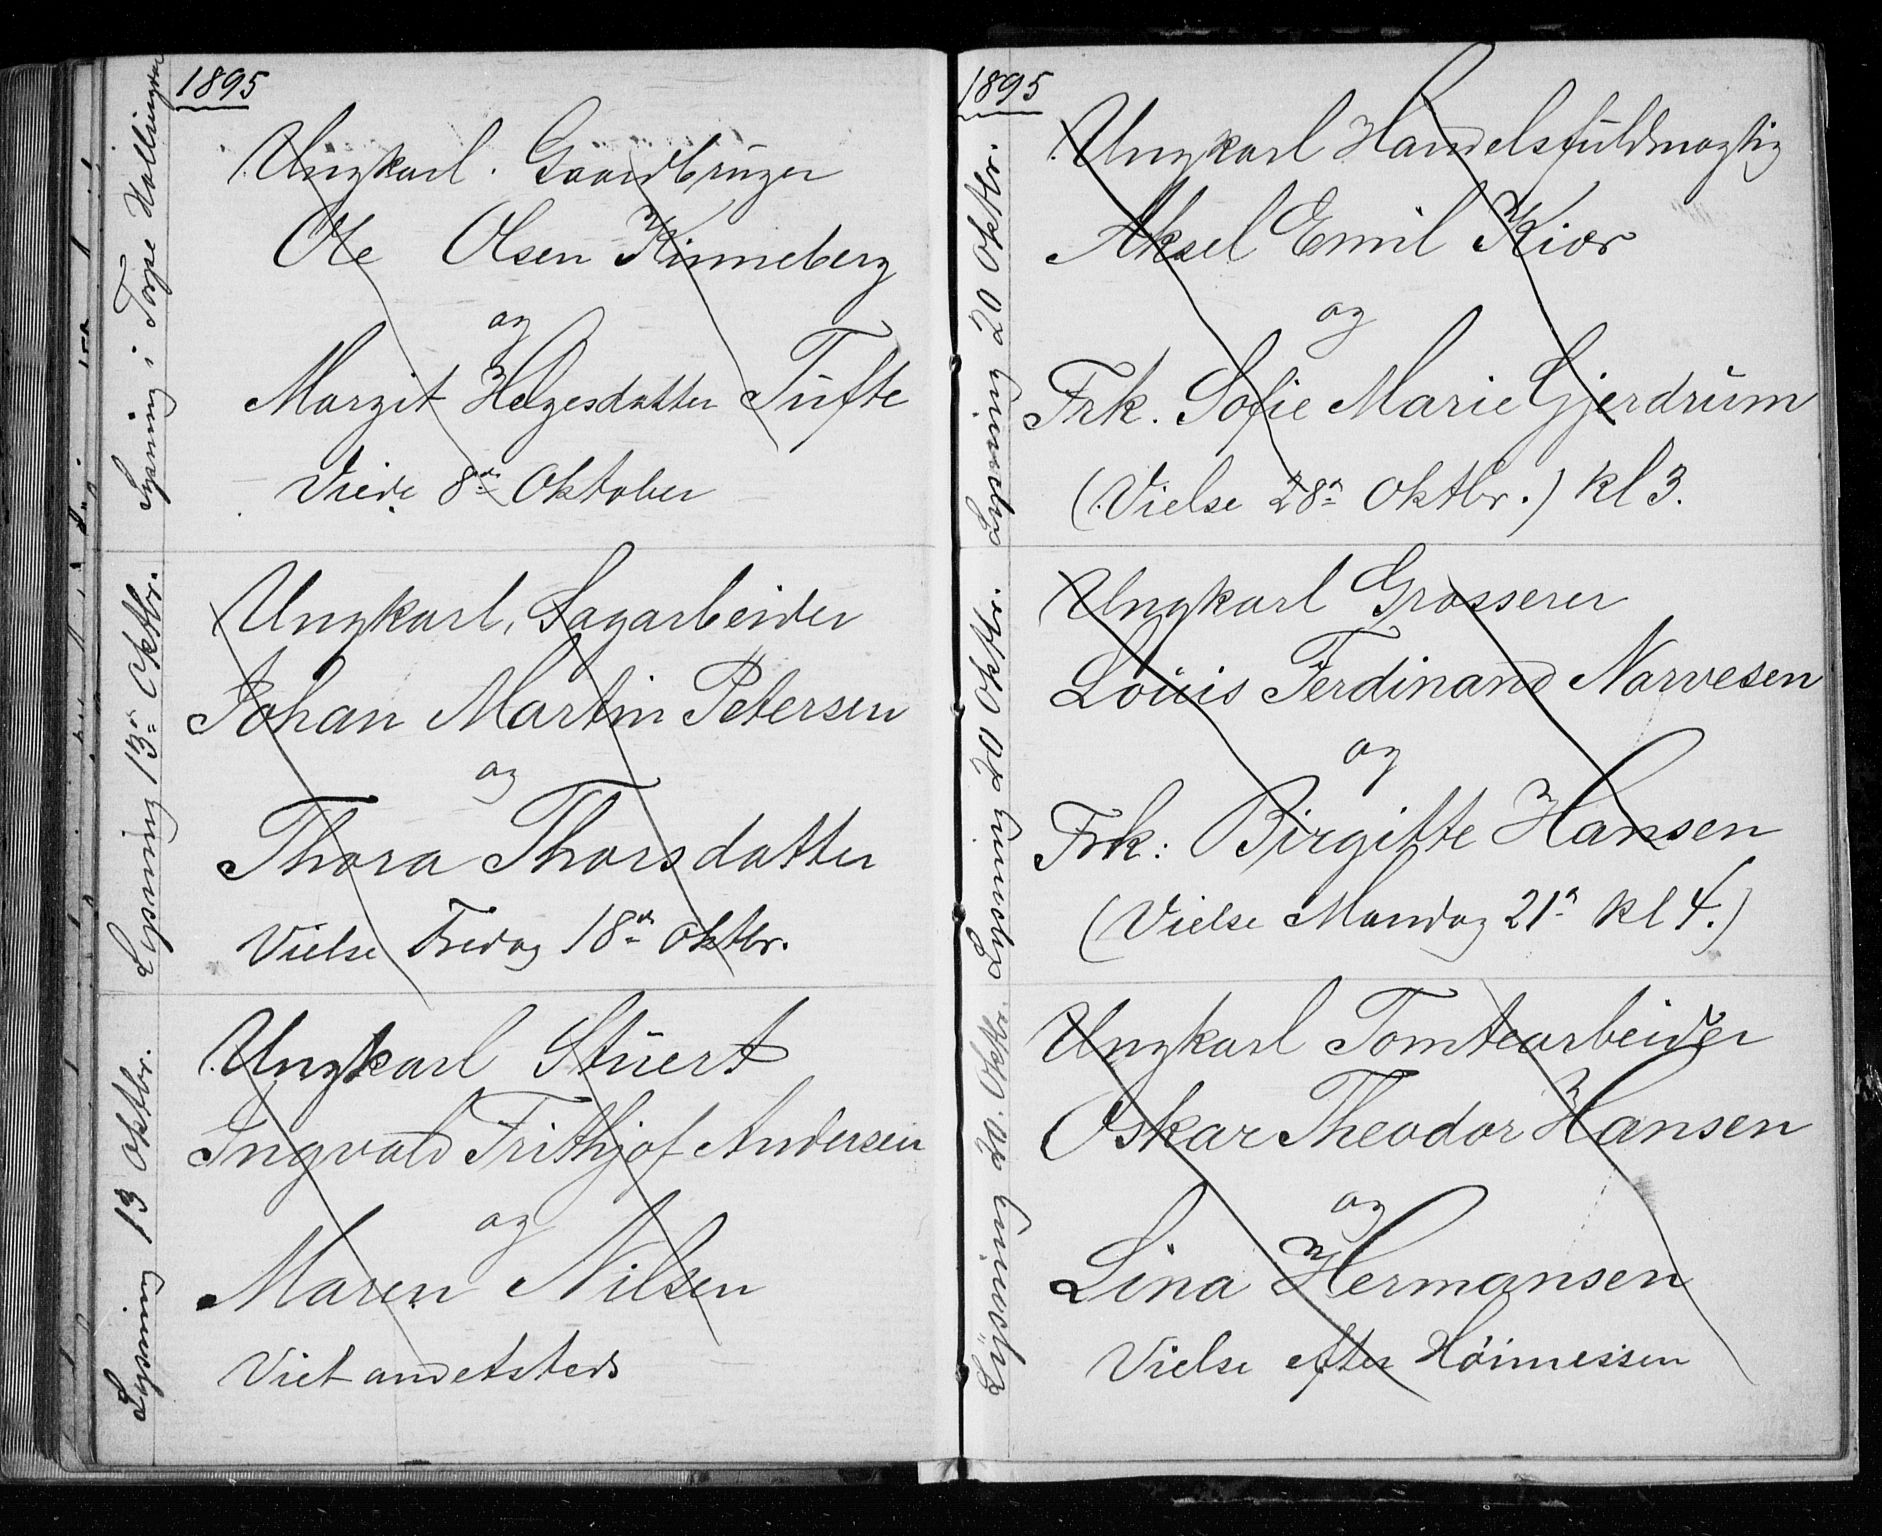 1895
Lysning i Torpe Hallingdal
Ungkarl. Gaardbruger
Ole Olsen Kinneberg
og
Margit Helgesdatter Tufte
Viede 8de Oktober
Lysning 13de Oktbr.
Ungkarl, Sagarbeider
Johan Martin Petersen
og
Thora Thorsdatter
Vielse Fredag 18de Oktbr.
Lysning 13 Oktbr.
Ungkarl Stuert
Ingvald Frithjof Andersen
og
Maren Nilsen
Viet andetsteds
1895
Lysning 20 Oktbr.
Ungkarl Handelsfuldmægtig
Aksel Emil Kiær
og
Frk. Sofie Marie Gjerdrum
(Vielse 28de Oktbr.) Kl 3.
Lysning 20 Oktbr.
Ungkarl Grosserer
Louis Ferdinand Narvesen
og
Frk: Birgitte Hansen
(Vielse Mandag 21de Kl 4.)
Lysning 20. Oktbr.
Ungkarl Tomtearbeider
Oskar Theodor Hansen
og
Lina Hermansen
Vielse efter Høimessen